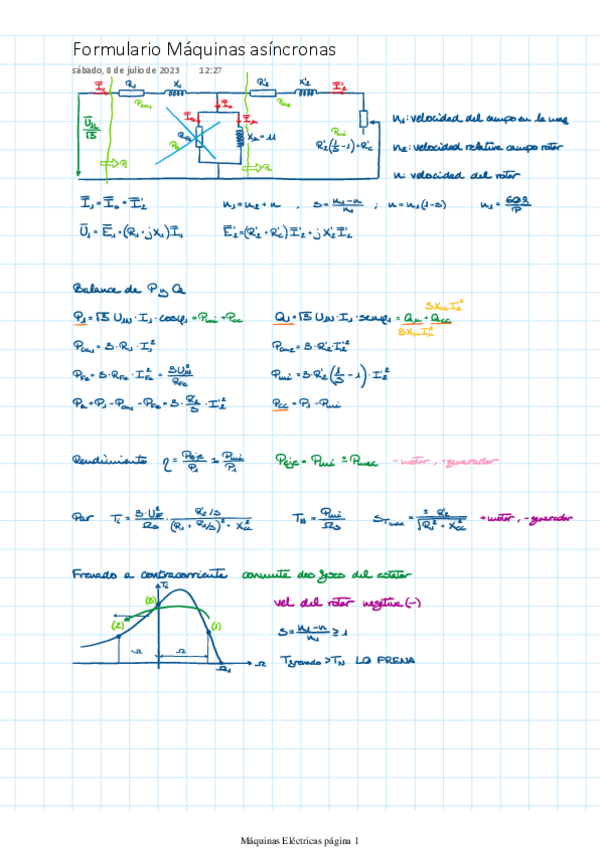 Formulario Máquinas asíncronas
sábado, 8 de julio de 2023 12:27
I̅₁ R₁ X₁ R'₂ X'₂ I̅'₂
Pcu₁
U̅₁N/√3
P₁
RFe Xμ = μ
Pmi
R'₂(1/S - 1) + R'c
n₁: velocidad del campo en la maq
n₂: velocidad relativa campo rotor
n: velocidad del rotor
I̅₁ = I̅₀ + I̅'₂ n₁ = n₂ + n , S = (n₁ - n)/n₁ ; n = n₁(1-S) n₁ = 60f/P
U̅₁ = E̅₁ + (R₁ + jX₁)I̅₁ E̅'₂ = (R'₂ + R'c)I̅'₂ + jX'₂I̅'₂
Balance de P y Q
3XccI'₂²
P₁ = √3 U₁N · I₁ · cosφ₁ = Pmi + Pcc Q₁ = √3 U₁N · I₁ · senφ₁ = Qμ + Qcc
3XμIμ²
Pcu₁ = 3 · R₁ · I₁² Pcu₂ = 3 · R'₂I'₂²
PFe = 3 · RFe · IFe² = 3U₁²/RFe Pmi = 3 · R'₂(1/S - 1) · I'₂²
Pa = P₁ - Pcu₁ - PFe = 3 · R'₂/S · I'₂² Pcc = P₁ - Pmi
Rendimiento η = Peje/P₁ = Pmi/P₁ Peje = Pmi ± Pmec - motor, + generador
Par Ti = 3·U₁²/Ωs · (R'₂/S)/((R₁ + R'₂/S)² + Xcc²) TN = Pmi/Ωs STmax = ± R'₂/√(R₁² + Xcc²) + motor, - generador
Frenado a contracorriente conmuta dos fases del estator
Ti
(3)
vel del rotor negativa (-)
(2) (1)
S = (n₁ - n)/n₁ ≥ 1
-Ω Ω
Ω₁ Ω
Tfrenado > TN LO FRENA
Máquinas Eléctricas página 1